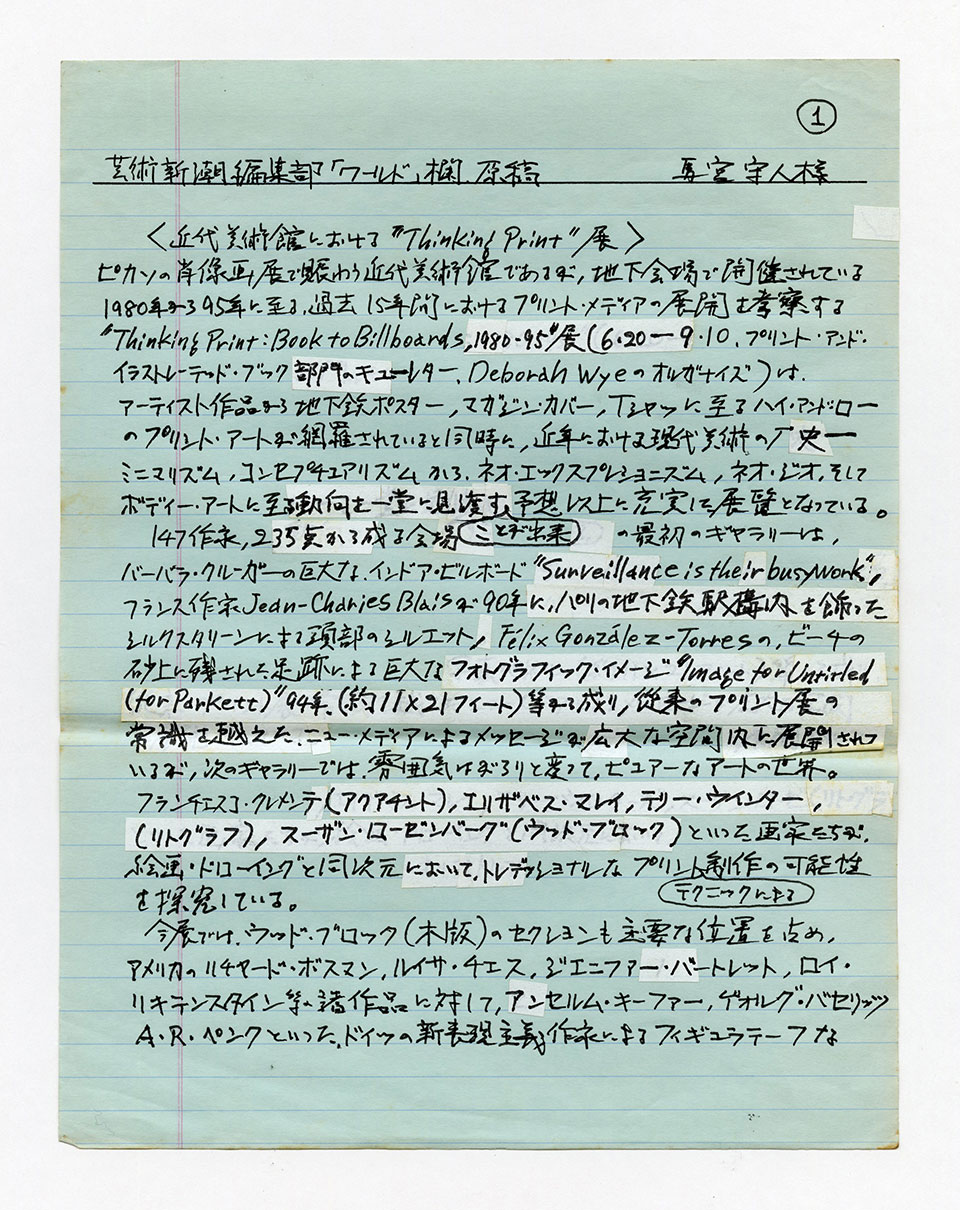 1
芸術新潮編集部「ワールド」欄、原稿 馬宮守人様
〈近代美術館における "Thinking Print" 展〉
ピカソの肖像画展で賑わう近代美術館であるが、地下会場で開催されている
1980年から95年に至る、過去15年間におけるプリント・メディアの展開を考察する
"Thinking Print: Book to Billboards, 1980-95"展(6・20ー9・10、プリント・アンド・
イラストレーテッド・ブック部門のキューレター、Deborah Wyeのオルガナイズ)は、
アーティスト作品から地下鉄ポスター,マガジン・カバー,Tシャツに至るハイ・アンド・ロー
のプリント・アートが網羅されていると同時に、近年における現代美術の歴史ー
ミニマリズム,コンセプチュアリズムから、ネオ・エックスプレショニズム,ネオ・ジオ,そして
ボディー・アートに至る動向を一堂に見渡す、予想以上に充実した展覧となっている。
147作家,235点から成る会場 ことが出来 の最初のギャラリーは,
バーバラ・クルーガーの巨大な、インドア・ビルボード "Surveillance is their busywork",
フランス作家Jean-Charles Blaisが90年に、パリの地下鉄駅構内を飾った
シルクスクリーンによる頭部のシルエット, Félix González-Torresの、ビーチの
砂上に残された足跡による巨大なフォトグラフィック・イメージ "Image for Untitled
(for Parkett)" 94年、(約11×21フィート)等から成り,従来のプリント展の
常識を越えた、ニュー・メディアによるメッセージが広大な空間内に展開されて
いるが,次のギャラリーでは、雰囲気はがらりと変って,ピュアーなアートの世界。
フランチェスコ・クレメンテ(アクアチント),エリザベス・マレイ,テリー・ウインター,
(リトグラフ), スーザン・ローゼンバーグ(ウッド・ブロック)といった画家たちが、
絵画・ドローイングと同次元において、トレデッショナルなプリント制作の可能性
テクニックによる
を探究している。
今展では、ウッド・ブロック(木版)のセクションも主要な位置を占め,
アメリカのリチャード・ボスマン,ルイサ・チエス,ジエニファー・バートレット,ロイ・
リキテンスタイン等の諸作品に対して,アンセルム・キーファー,ゲオルグ・バセリッツ
A・R・ペンクといった、ドイツの新表現主義作家によるフィギュラテーフな